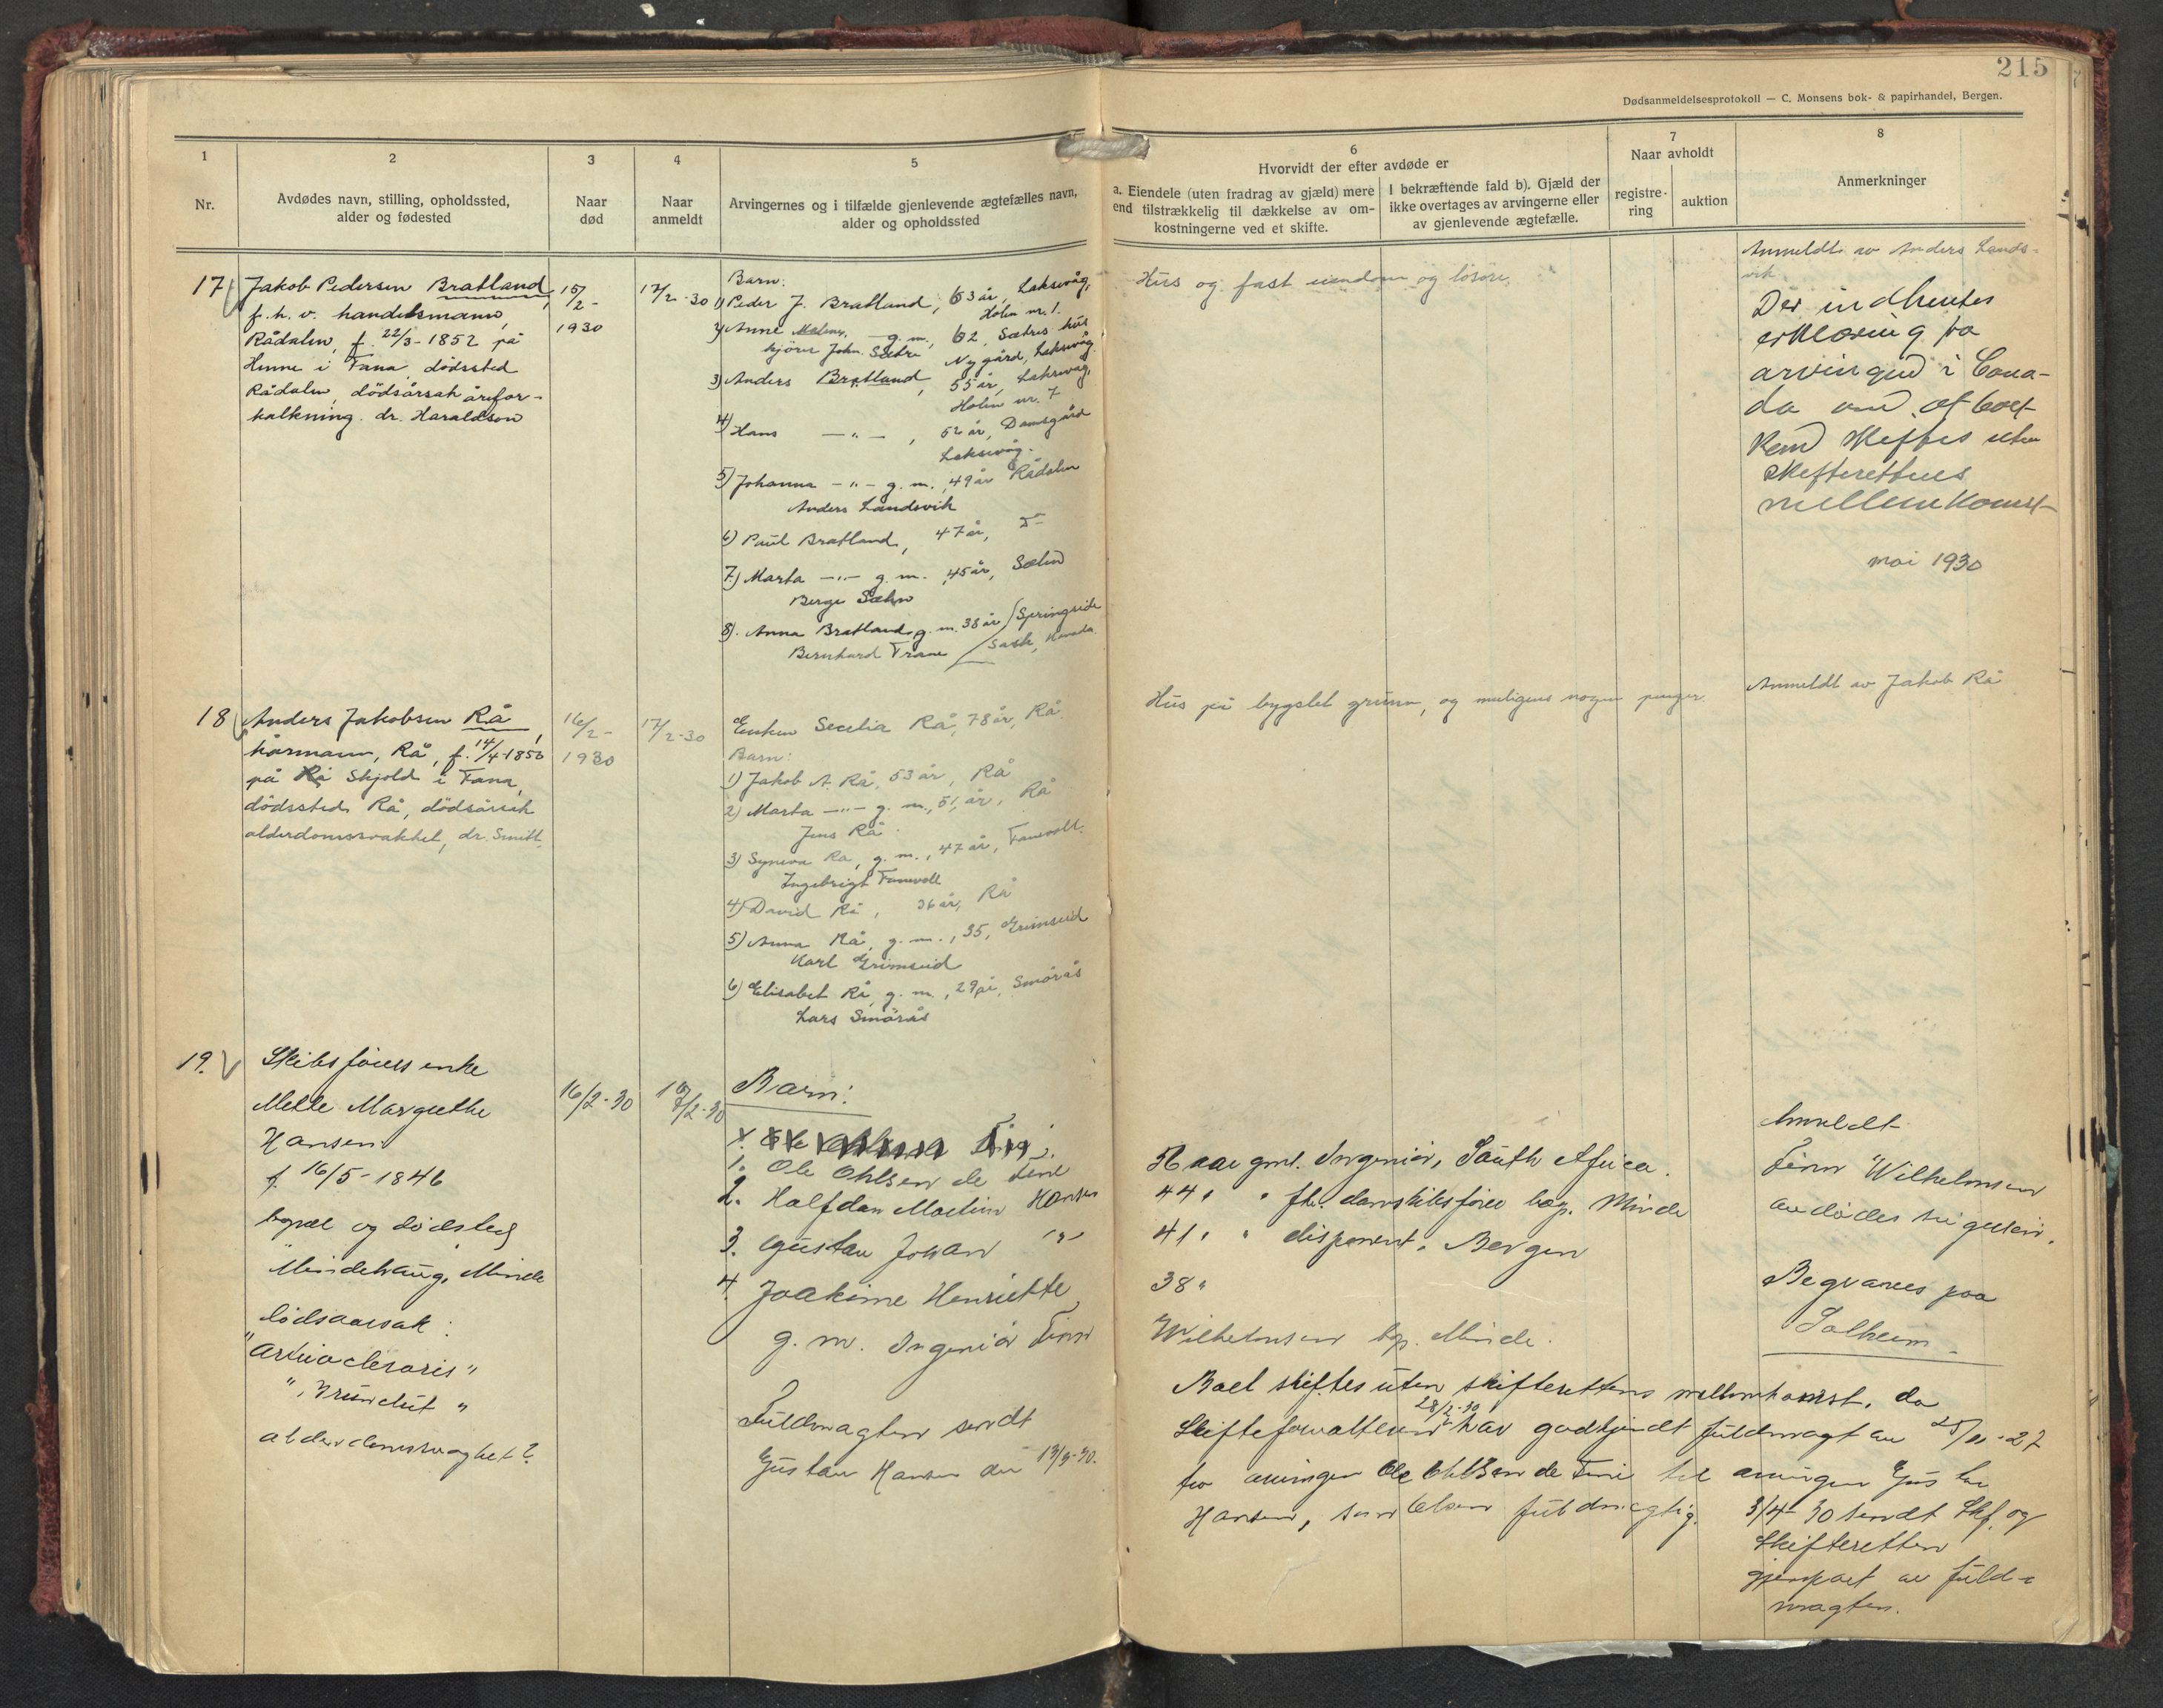 215
Dødsanmeldelsesprotokoll — C. Monsens bok- & papirhandel, Bergen.
1
2
3
4
5
6
7
8
Nr.
Avdødes navn, stilling, opholdssted,
alder og fødested
Naar
død
Naar
anmeldt
Arvingernes og i tilfælde gjenlevende ægtefælles navn,
alder og opholdssted
Hvorvidt der efter avdøde er
a. Eiendele (uten fradrag av gjæld) mere
end tilstrækkelig til dækkelse av om-
kostningerne ved et skifte.
I bekræftende fald b). Gjæld der
ikke overtages av arvingerne eller
av gjenlevende ægtefælle.
Naar avholdt
registre-
ring
auktion
Anmerkninger
17
Jakob Pedersen Bratland,
f. h. v. handelsmann,
Rådalen, f. 22/3-1852 på
Hinne i Fana, dödssted
Rådalen, dödsårsak årefor-
kalkning. dr. Haraldson
15/2-
1930
17/2-30
Barn:
1) Peder J. Bratland, 63 år, Laksevåg,
Holen nr. 1.
2) Anne g. m., 62, Sætres hus
kjörer John. Sætre Nygård, Laksevåg.
3) Anders Bratland, 55 år, Laksevåg,
Holen nr. 7
4) Hans —"—, 52 år, Damsgård
Laksevåg.
5) Johanna —"— g. m., 49 år Rådalen
Anders Landsvik
6) Paul Bratland, 47 år, D-
7) Marta —"— g. m., 45 år, Sælen
Berge Sælen
8). Anna Bratland g. m. 38 år Springside
Bernhard Trane Sask, Kanada
Hus og fast eiendom og lösöre,
Anmeldt av Anders Lands-
vik
Der indhentes
erklæring fra
arvingen i Cana-
da om at boet
kan skiftes uten
skifterettens
mellemkomst
mai 1930
18
Anders Jakobsen Rå,
kårmann, Rå, f. 14/4-1850
på Skjold i Fana,
dödssted Rå, dödsårsak
alderdomssvakhet, dr. Smitt.
16/2-
1930
17/2-30
Enken Secelia Rå, 78 år, Rå.
Barn:
1) Jakob A. Rå, 53 år, Rå
2) Marta —"— g. m., 51 år, Rå
Jens Rå
3) Syneva Rå, g. m., 47 år, Fanevoll.
Ingebrigt Fanevoll
4) David Rå, 36 år, Rå
5) Anna Rå, g. m., 35, Grimseid
Karl Grimseid
6) Elisabet Rå, g. m., 29 år, Smörås
Lars Smörås
Hus på bygslet grunn, og muligens nogen penger.
Anmeldt av Jakob Rå
19.
Skibsförers enke
Mette Margrethe
Hansen
f. 16/5-1846
bopæl og dödsted
"Mindehaug, Minde
Dödsaarsak:
"
alderdomssvaghet?
16/2-30
17/2-30
Barn:
1. Ole Ohlsen de Fine
2. Halfdan Martin Hansen
3. Gustav Johan "
4. Joakime Henriette
g. m. Ingeniör Finn
Fuldmagten sendt
Gustav Hansen den 13/3-30.
56 aar gml. Ingeniör, South Africa.
44 " " fhv. dampskibsförer bop. Minde
41 " " disponent, Bergen
38 "
Wilhelmsen bop. Minde.
Anmeldt
Finn Wilhelmsen
avdödes svigersön.
Begraves paa
Solheim.
Boet skiftes uten skifterettens mellemkomst, da
Skifteforvalteren 28/2-30 har godkjendt fuldmagt av 25/11-27
fra arvingen Ole Ohlsen de Fine til arvingen Gustav
Hansen, som fuldmægtig.
3/4-30 sendt Skf. og
Skifteretten
gjenpart av fuld-
magten.